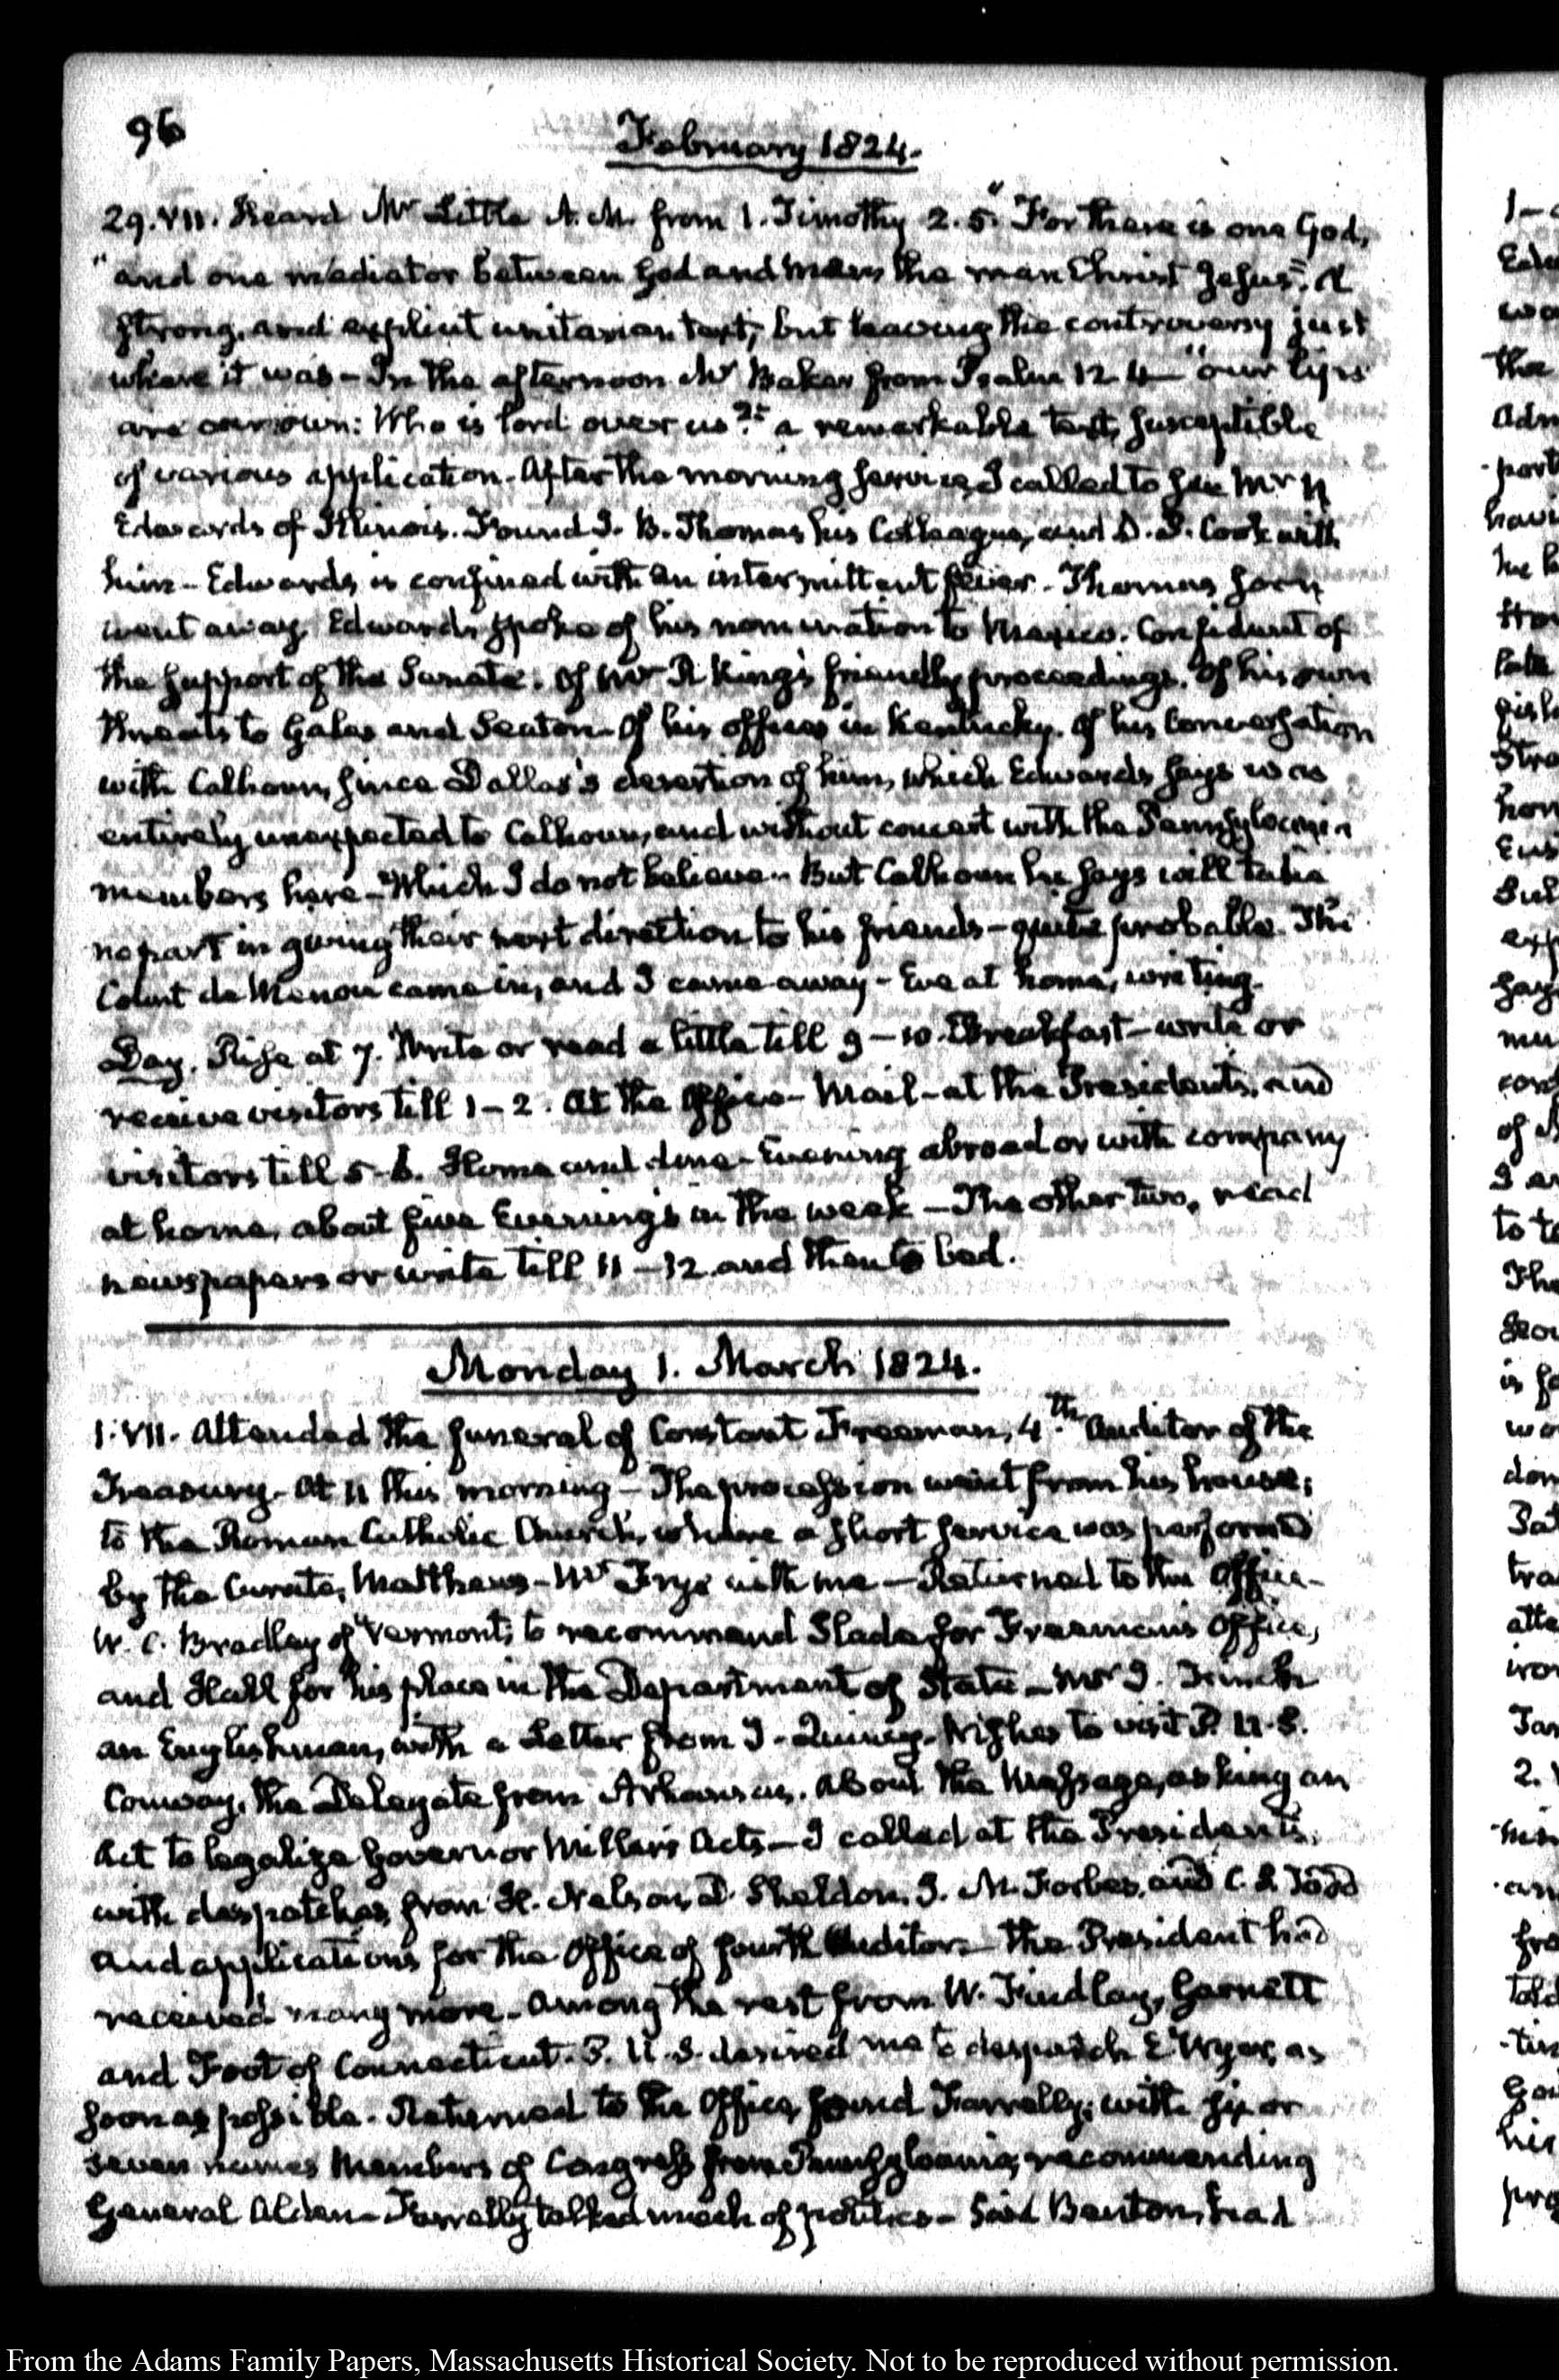 96
February 1824.
29. VII. Heard Mr Little A.M. from 1. Timothy 2.5. "For there is one God,
"and one mediator between God and Men, the man Christ Jesus". A
strong, and explicit unitarian text; but leaving the controversy just
where it was — In the afternoon Mr Baker from Psalm 12.4 "our lips
are our own: Who is lord over us?" a remarkable text, susceptible
of various application. After the morning service, I called to see Mr N
Edwards of Illinois. Found J. B. Thomas his Colleague, and D. P. Cook with
him — Edwards is confined with an intermittent fever. Thomas soon
went away. Edwards spoke of his nomination to Mexico. Confident of
the support of the Senate. Of Mr R King's friendly proceedings. Of his own
threats to Gales and Seaton. Of his offices in Kentucky. Of his Conversation
with Calhoun, since Dallas's desertion of him, which Edwards says was
entirely unexpected to Calhoun, and without concert with the Pennsylvania
members here — Which I do not believe — But Calhoun he says will take
no part in giving their next direction to his friends — quite probable. The
Count de Menou came in, and I came away — Eve at home, writing.
Day. Rise at 7. Write or read a little till 9 – 10. Breakfast — write or
receive visitors till 1 – 2. At the Office — Mail — at the Presidents, and
visitors till 5 – 6. Home and dine — Evening abroad or with company
at home, about five Evenings in the week — The other two, read
newspapers or write till 11 – 12 and then to bed.
Monday 1. March 1824.
1. VII. Attended the funeral of Constant Freeman, 4.th Auditor of the
Treasury. At 11 this morning — The procession went from his house;
to the Roman Catholic Church, where a short service was performed
by the Curate, Matthews — Mr Frye with me — Returned to the Office —
W. C. Bradley of Vermont, to recommend Slade for Freeman's Office,
and Hall for his place in the Department of State — Mr I.
an Englishman, with a Letter from J. Quincy. Wishes to visit P. U.S.
Conway, the Delegate from Arkansas. About the Message, asking an
Act to legalize Governor Miller's Acts — I called at the President's,
with despatches from H. Nelson, D. Sheldon, J. M. Forbes, and C. S. Todd
and applications for the Office of fourth Auditor — the President had
received many more. Among the rest from W. Findlay, Garnett
and Foot of Connecticut. P. U.S. desired me to despatch E Wyer, as
soon as possible. Returned to the Office, found Farrelly; with six or
seven names Members of Congress from Pennsylvania, recommending
General Alden — Farrelly talked much of politics — Said Benton, had
From the Adams Family Papers, Massachusetts Historical Society. Not to be reproduced without permission.